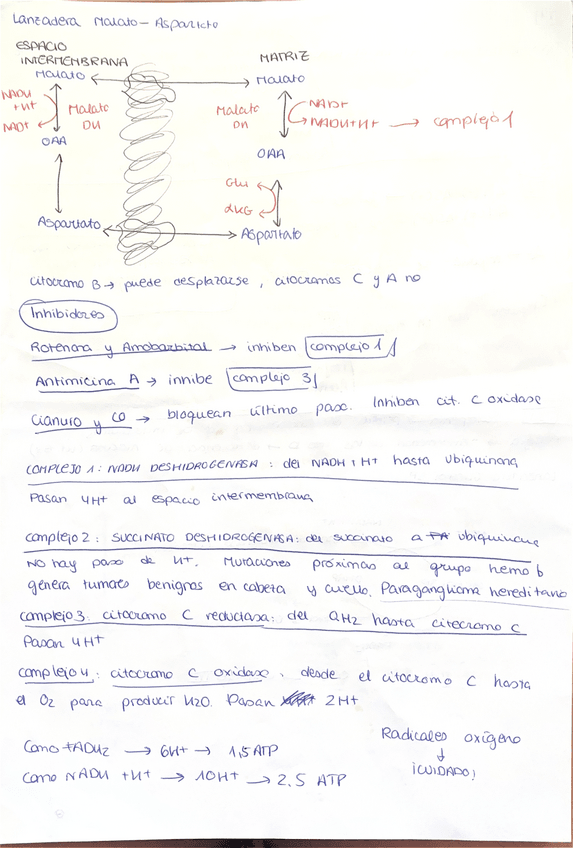 Lanzadera Malato - Aspartato
ESPACIO INTERMEMBRANA
MATRIZ
Malato
Malato
NADH +H+
NAD+
Malato DH
Malato DH
NAD+
NADH+H+ → complejo 1
OAA
OAA
Glu
αKG
Aspartato
Aspartato
citocromo B → puede desplazarse, citocromos C y A no
Inhibidores
Rotenona y Amobarbital → inhiben complejo 1
Antimicina A → inhibe complejo 3
Cianuro y CO → bloquean último paso. Inhiben cit. C oxidasa
COMPLEJO 1: NADH DESHIDROGENASA: del NADH + H+ hasta ubiquinona
Pasan 4H+ al espacio intermembrana
complejo 2: SUCCINATO DESHIDROGENASA: del succinato a ubiquinona
NO hay paso de H+. Mutaciones próximas al grupo hemo b
genera tumores benignos en cabeza y cuello. Paraganglioma hereditario
complejo 3: citocromo C reductasa: del QH2 hasta citocromo C
Pasan 4H+
complejo 4: citocromo C oxidasa. desde el citocromo C hasta
el O2 para producir H2O. Pasan 2H+
Como FADH2 → 6H+ → 1,5 ATP
Como NADH +H+ → 10H+ → 2.5 ATP
Radicales oxígeno
↓
¡CUIDADO!